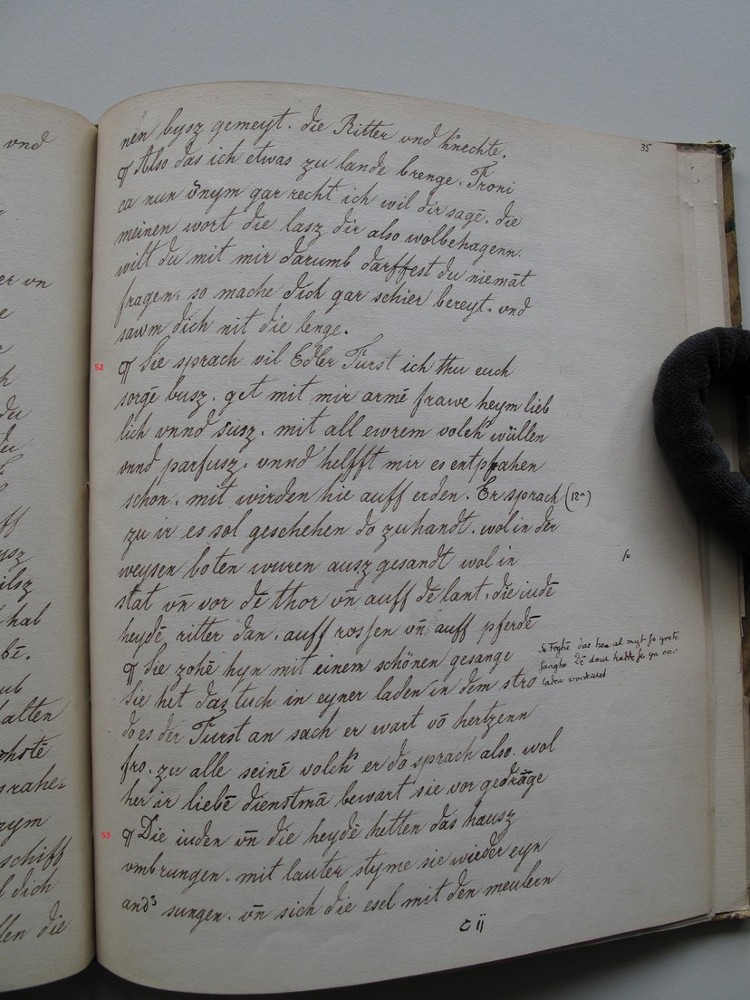 vnd
er vn
e
h
du
du
ff
ysz
ilsz
hal
bē.
ub
alten
ohste
nym
schiff
l dich
llen die
35
nen bysz gemeyt. die Ritter vnd knechte.
¶ Also das ich etwas zu lande brenge. Froni
ca nun vnym gar recht ich wil dir sagē. die
meinen wort die lasz dir also wolbehagenn.
wilt du mit mir darumb darffest du niemāt
fragen. so mache dich gar schier bereyt. vnd
sawm dich nit die lenge.
52 ¶ Sie sprach vil Edler Furst ich thu euch
sorgē busz. get mit mir armē frawe heym lieb
lich vnnd susz. mit all ewrem volck wüllen
vnnd parfusz. vnnd helfft mir es entpfahen
schon. mit wirden hie auff erden. Er sprach (12a)
zu ir es sol geschehen do zuhandt. wol in der
weysen boten wuren ausz gesandt wol in
stat vn̄ vor dē thor vn̄ auff dē lant. die iudē
heydē ritter dan. auff rossen vn̄ auff pferdē
¶ Sie zohē hyn mit einem schönen gesange
Sie het daz tuch in eyner laden in dem stro
do es der Furst an sach er wart vō hertzenn
fro. zu alle seinē volck er do sprach also. wol
her ir liebē dienstmā bewart sie vor gedrāge
53 ¶ Die iuden vn̄ die heydē hetten das hausz
vmbrungen. mit lauter styme sie wieder eyn
and3 sungen. vn̄ sich die esel mit den meulern
c ij